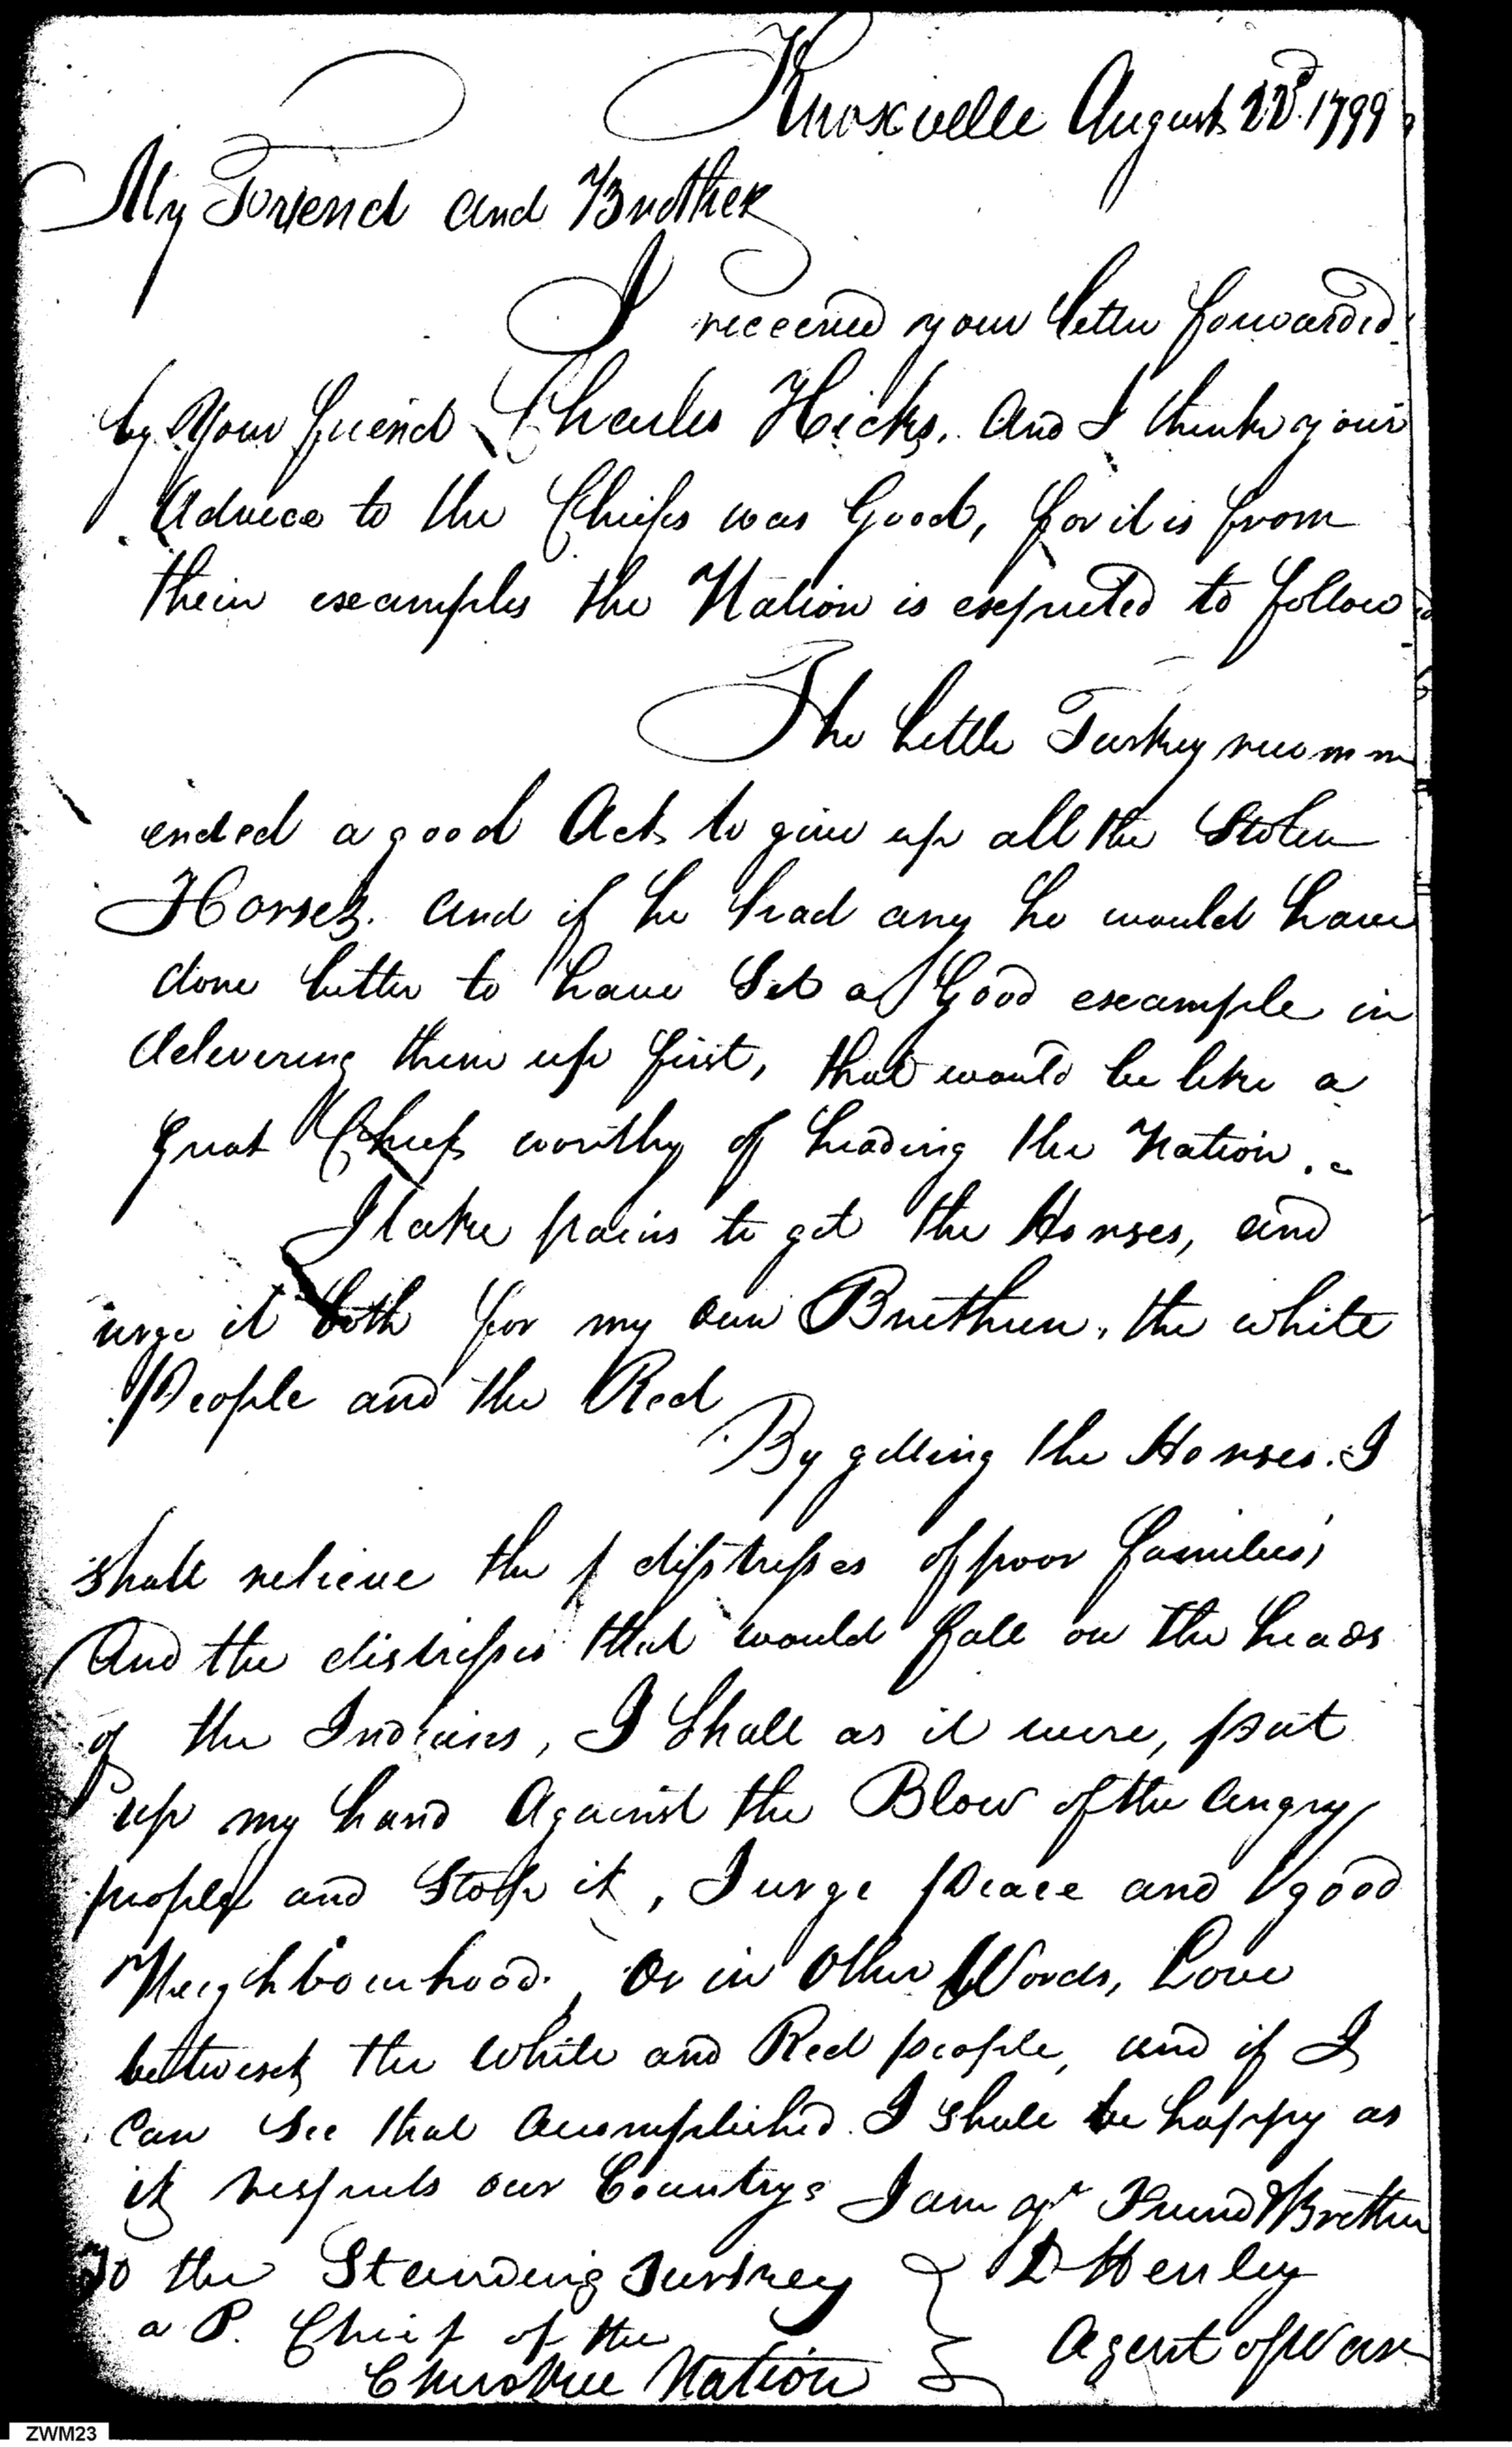 Knoxville August 22d. 1799
My Friend and Brother
I received your letter forwarded
by Your friend Charles Hicks. And I think your
Advice to the Chiefs was Good, for it is from
their examples the Nation is expected to follow
The Little Turkey recomm
ended a good Act to give up all the Stolen
Horses. and if he had any he would have
done better to have Set a Good example in
delivering them up first, that would be like a
great Chief worthy of heading the Nation.
I take pains to get the Horses, and
urge it both for my own Brethren, the white
People and the Red
By getting the Horses. I
shall relieve the distresses of poor families,
And the distresses that would fall on the heads
of the Indians, I Shall as it were, put
up my hand Against the Blow of the Angry
people and Stop it, I urge peace and good
Neighbourhood, Or in Other Words, Love
betwext the White and Red people, and if I
Can See that Accomplished. I shall be happy as
it respects our Country I am yr Friend & Brother
To the Standing Turkey } D Henley
a P. Chief of the
Agent of War
Cherokee Nation
ZWM23